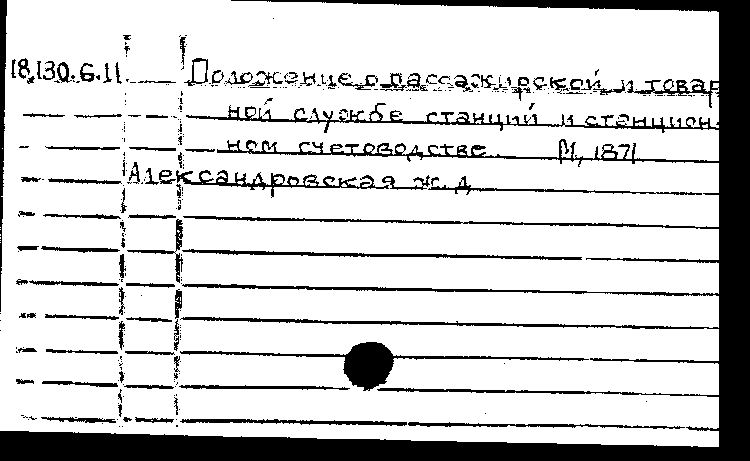 18.130.6.11 Положение о пассажирской и товар
ной службе станций и станцион-
ном счетоводстве. М., 1871
Александровская ж. д.